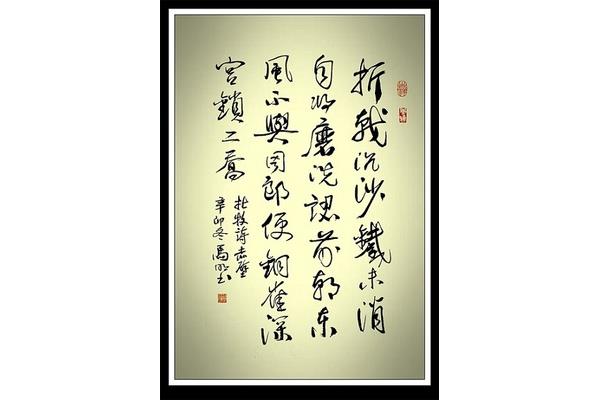 折戟沉沙鐵未消
自將磨洗認前朝東
風不與周郎便銅雀深
宮鎖二喬
杜牧詩赤壁
辛卯冬馬書